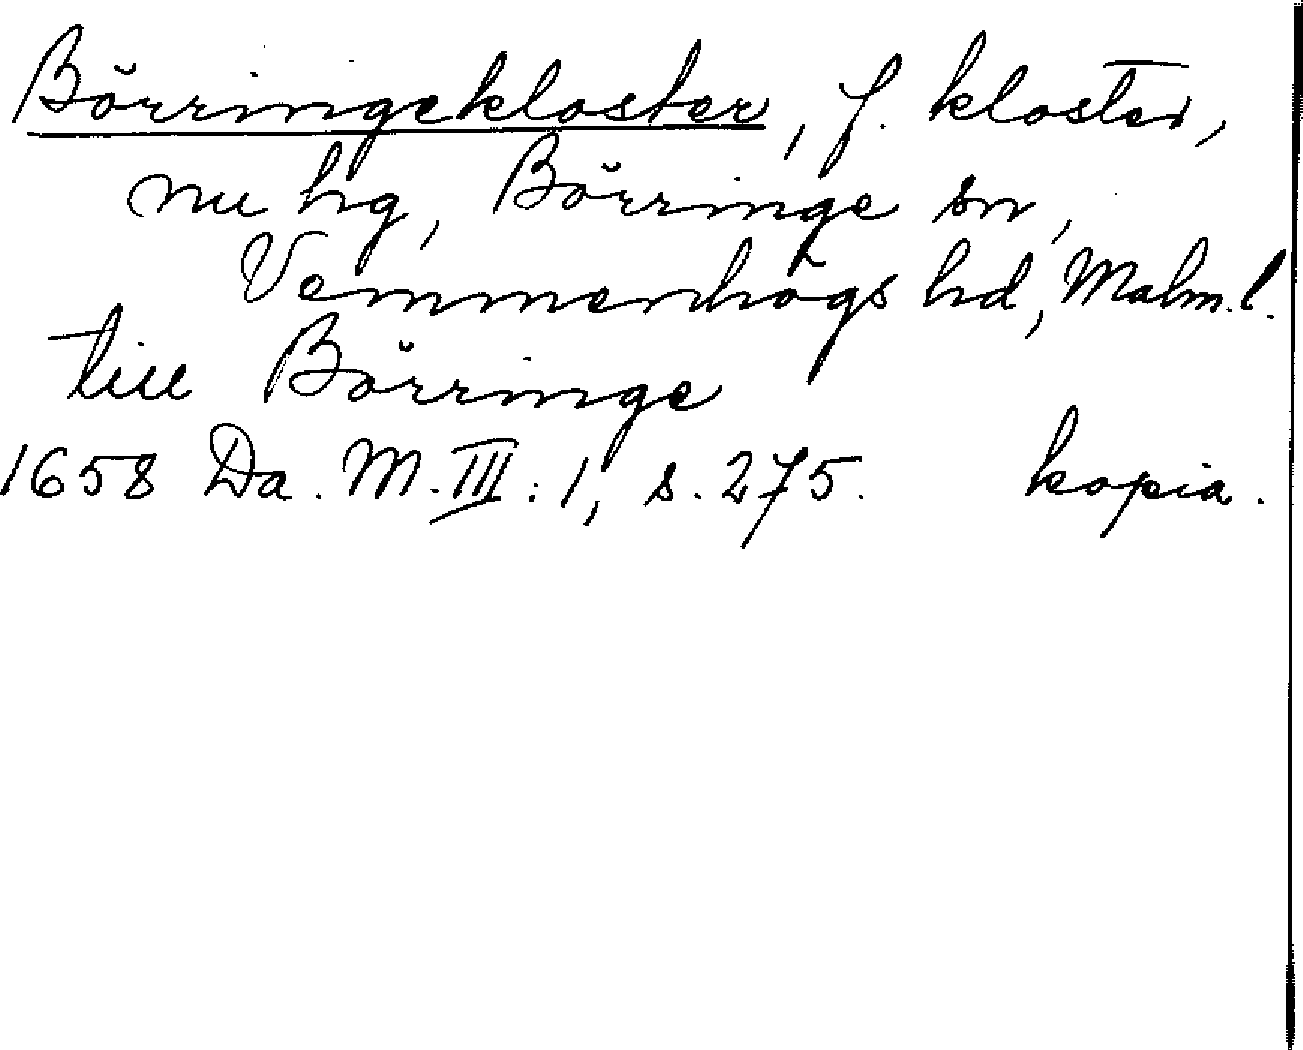 Börringekloster, f. kloster,
nu hg, Börringe sn,
Vemmenhögs hd, Malm.l.
till Börringe
1658 Da. M. III: 1, s. 275. kopia.